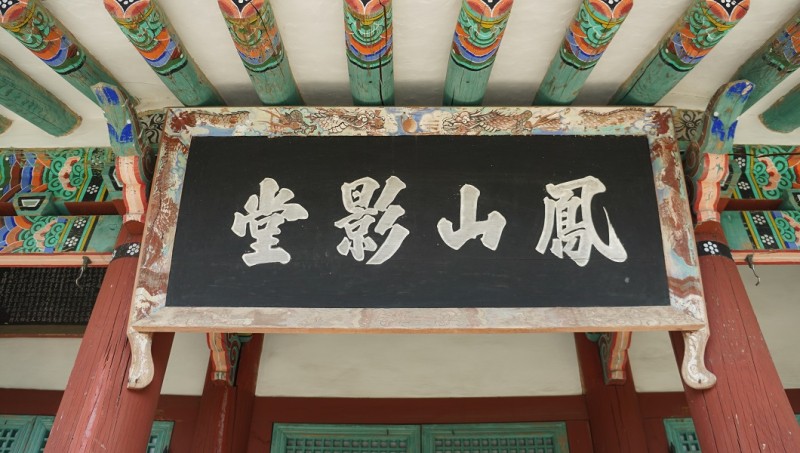 鳳山影堂